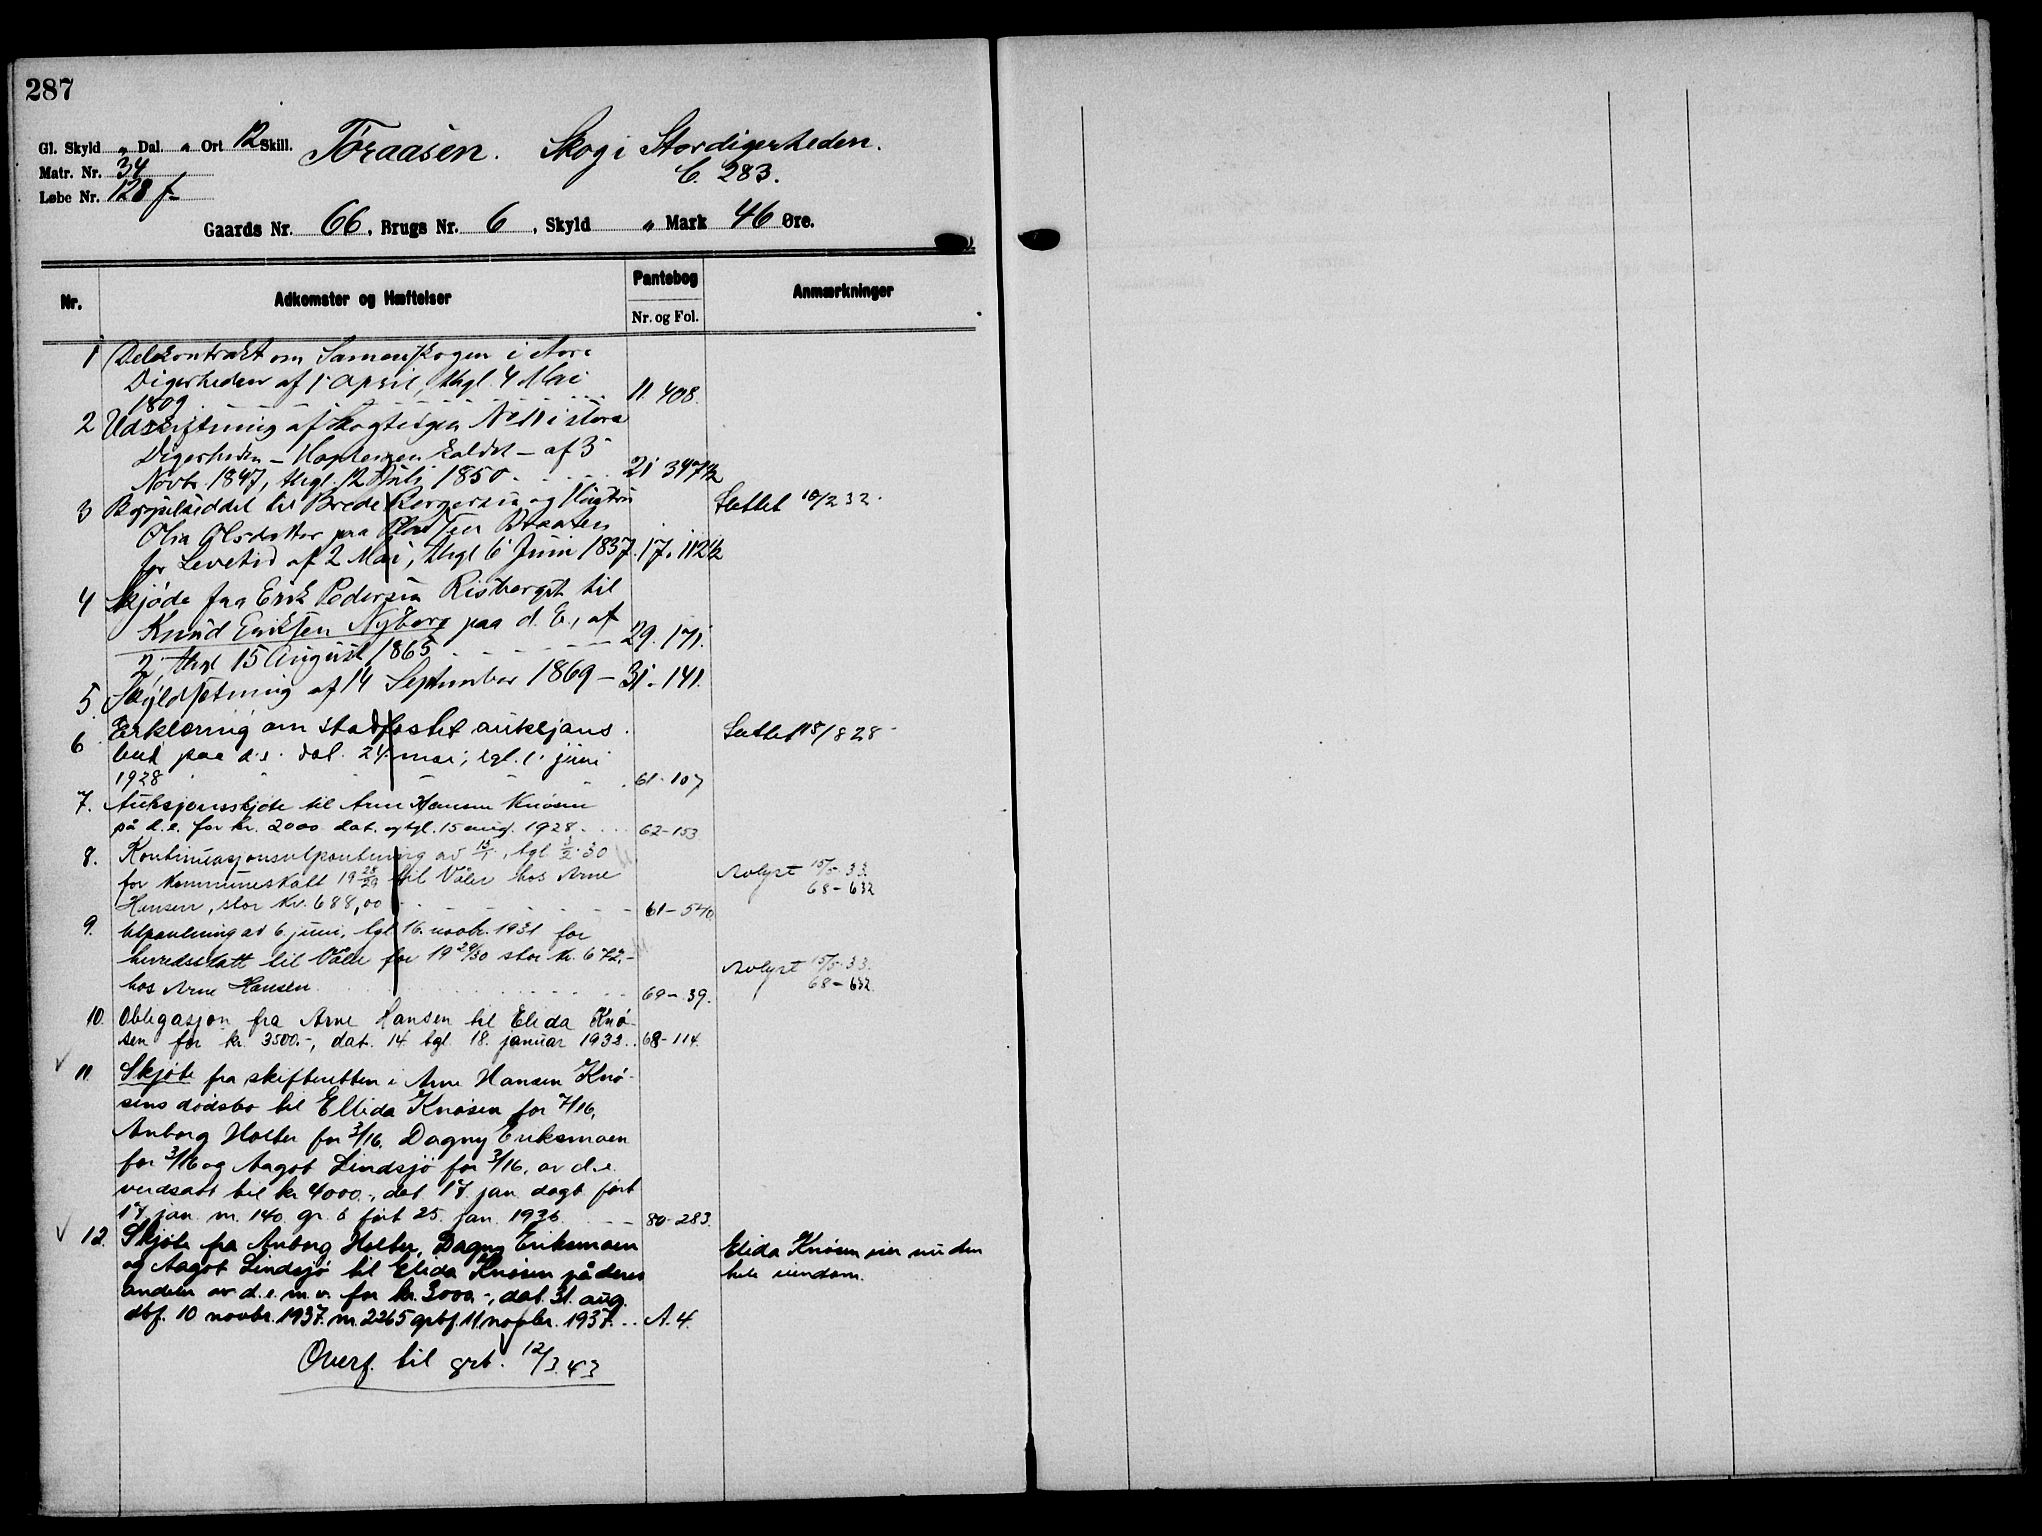 287
Gl. Skyld „ Dal. „ Ort 12 Skill. Töraasen. Skog i Stordigerheden.
Matr. Nr. 34 C. 283.
Løbe Nr. 128 f
Gaards Nr. 66, Brugs Nr. 6, Skyld „ Mark 46 Øre.
Nr. Adkomster og Hæftelser Pantebog Anmærkninger
Nr. og Fol.
1 Delekontrakt om Sameieskogen i Store
Digerheden af 1 April, thgl. 4 Mai
1809 11. 408.
2 Udskiftning af Skogteigen No 11 i store
Digerheden – kaldet – af 5
Novbr. 1847, thgl. 12 Juli 1850. 21 347½
3 Bygselseddel til Brede Borgersen og Hustru Slettet 10/2 32.
Olia Olsdatter paa Pladsen Braaten
for Levetid af 2 Mai, thgl 6 Juni 1837. 17. 112½
4 Skjöde fra Erik Pedersen Risberget til
Knud Eriksen Nyberg paa d. E., af
2, thgl 15 August 1865 29. 171.
5. Skyldsetning af 14 September 1869 – 31. 141.
6 Erklæring om stadfæstet auksjons Slettet 18/8 28
bud paa d.e. dat. 24 mai, tgl. 1. juni
1928 61-107
7. Auksjonsskjöte til Arne Hansen Knösen
på d.e. for kr. 2000 dat. og tgl. 15 aug. 1928. 62-153
8. Kontinuasjonsutpantning av 13/1, tgl 3/2 30
for kommuneskatt 19 28/29 til Våler hos Arne Avlyst 15/5. 33.
Hansen, stor kr. 688,00 61-540. 68-632
9. Utpantning av 6. juni, tgl 16. novbr. 1931 for
herredsskatt til Våler for 19 29/30 stor kr. 672,- Avlyst 15/5. 33.
hos Arne Hansen 69-39. 68-632.
10. Obligasjon fra Arne Hansen til Elida Knö-
sen for kr. 3500.-, dat. 14. tgl. 18. januar 1932. 68-114.
11 Skjöte fra skifteretten i Arne Hansen Knö-
sens dödsbo til Ellida Knösen for 7/16,
Anborg Holter for 3/16, Dagny Eriksmoen
for 3/16 og Aagot Lindsjö for 3/16, av d.e.
verdsatt til kr 4000.-, dat. 17 jan. dagb. fört
17. jan. nr. 140 gr. b fört 25. jan. 1936 80-283.
12. Skjöte fra Anborg Holter, Dagny Eriksmoen Elida Knösen eier nu den
og Aagot Lindsjö til Elida Knösen på deres hele eiendom.
andeler av d.e. m.v. for kr. 3000.-, dat. 31. aug.
dbf. 10 novbr. 1937. nr. 2265 grbf. 11 novbr. 1937. A. 4.
Overf. til grb. 12/3 43